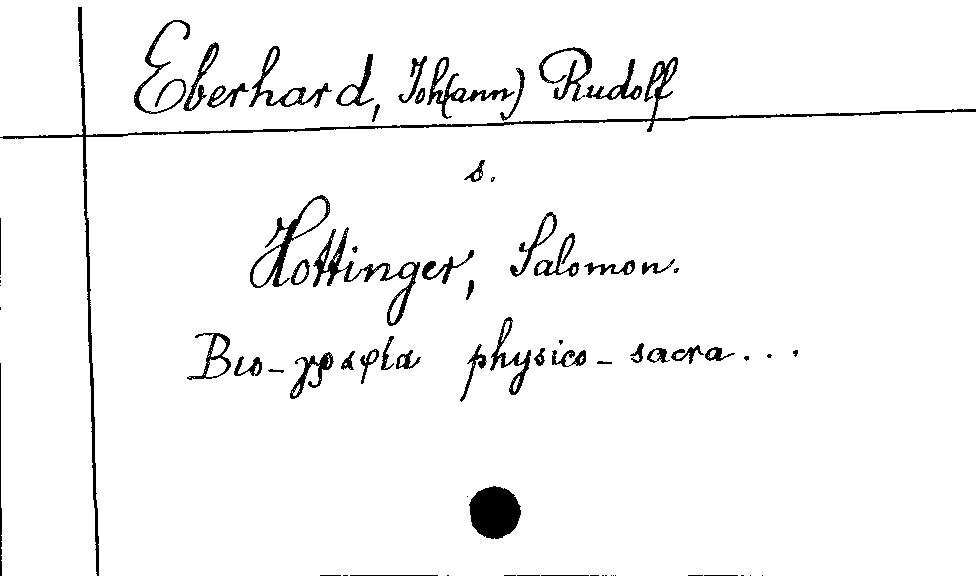 Eberhard, Joh(ann) Rudolf
s.
Hottinger, Salomon.
Βιο-γραφία physico-sacra...